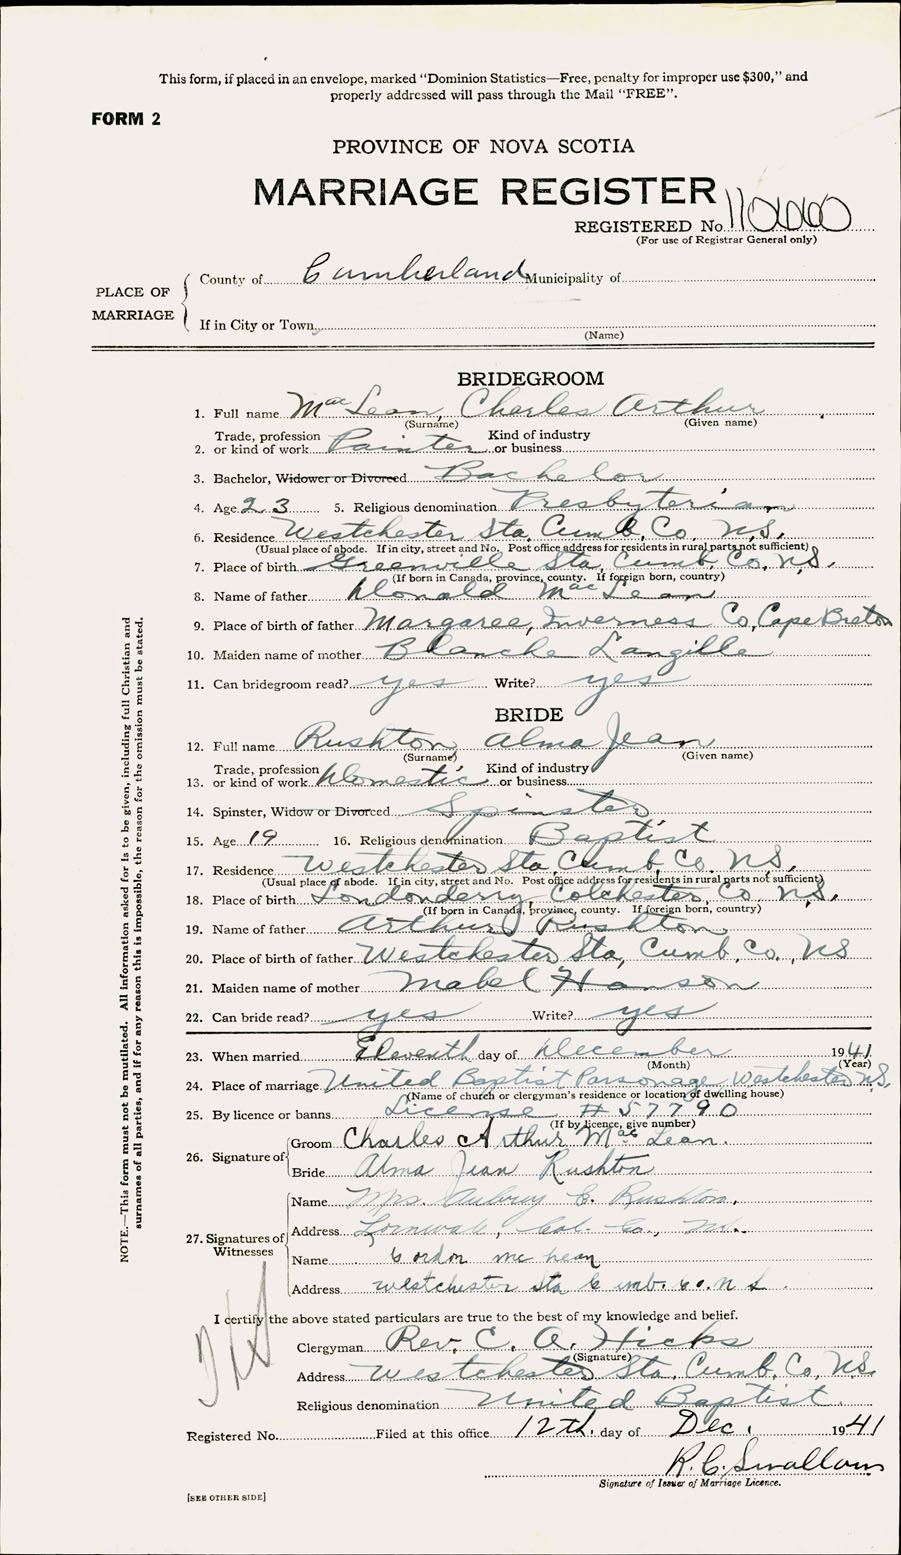 This form, if placed in an envelope, marked “Dominion Statistics—Free, penalty for improper use $300,” and
properly addressed will pass through the Mail “FREE”.
FORM 2
PROVINCE OF NOVA SCOTIA
MARRIAGE REGISTER
REGISTERED No.
(For use of Registrar General only)
PLACE OF MARRIAGE
County of Cumberland Municipality of
If in City or Town
(Name)
BRIDEGROOM
1. Full name MacLean, Charles Arthur
(Surname) (Given name)
2. Trade, profession or kind of work Painter Kind of industry or business
3. Bachelor, Widower or Divorced Bachelor
4. Age 23 5. Religious denomination Presbyterian
6. Residence Westchester Sta, Cumb, Co, N.S.
(Usual place of abode. If in city, street and No. Post office address for residents in rural parts not sufficient)
7. Place of birth Greenville Sta, Cumb. Co, N.S.
(If born in Canada, province, county. If foreign born, country)
8. Name of father Donald MacLean
9. Place of birth of father Margaree, Inverness Co, Cape Breton
10. Maiden name of mother Blanche Langille
11. Can bridegroom read? yes Write? yes
BRIDE
12. Full name Rushton, Alma Jean
(Surname) (Given name)
13. Trade, profession or kind of work Domestic Kind of industry or business
14. Spinster, Widow or Divorced Spinster
15. Age 19 16. Religious denomination Baptist
17. Residence Westchester Sta, Cumb, Co, N.S.
(Usual place of abode. If in city, street and No. Post office address for residents in rural parts not sufficient)
18. Place of birth Londonderry, Colchester Co N.S.
(If born in Canada, province, county. If foreign born, country)
19. Name of father Arthur Rushton
20. Place of birth of father Westchester Sta, Cumb, Co., NS
21. Maiden name of mother Mabel Hanson
22. Can bride read? yes Write? yes
23. When married Eleventh day of December 1941
(Month) (Year)
24. Place of marriage United Baptist Parsonage Westchester N.S.
(Name of church or clergyman's residence or location of dwelling house)
25. By licence or banns License # 57790
(If by licence, give number)
26. Signature of
Groom Charles Arthur MacLean.
Bride Alma Jean Rushton
27. Signatures of Witnesses
Name Mrs. Aubrey E. Rushton,
Address Col. Co.,
Name Gordon McLean
Address Westchester Sta Cumb. Co. N S.
I certify the above stated particulars are true to the best of my knowledge and belief.
Clergyman Rev. E. A. Hicks
(Signature)
Address Westchester Sta, Cumb. Co, N.S.
Religious denomination United Baptist
Registered No. Filed at this office 12th. day of Dec. 1941
R. C. Swallow
Signature of Issuer of Marriage Licence.
[SEE OTHER SIDE]
NOTE.—This form must not be mutilated. All information asked for is to be given, including full Christian and
surnames of all parties, and if for any reason this is impossible, the reason for the omission must be stated.